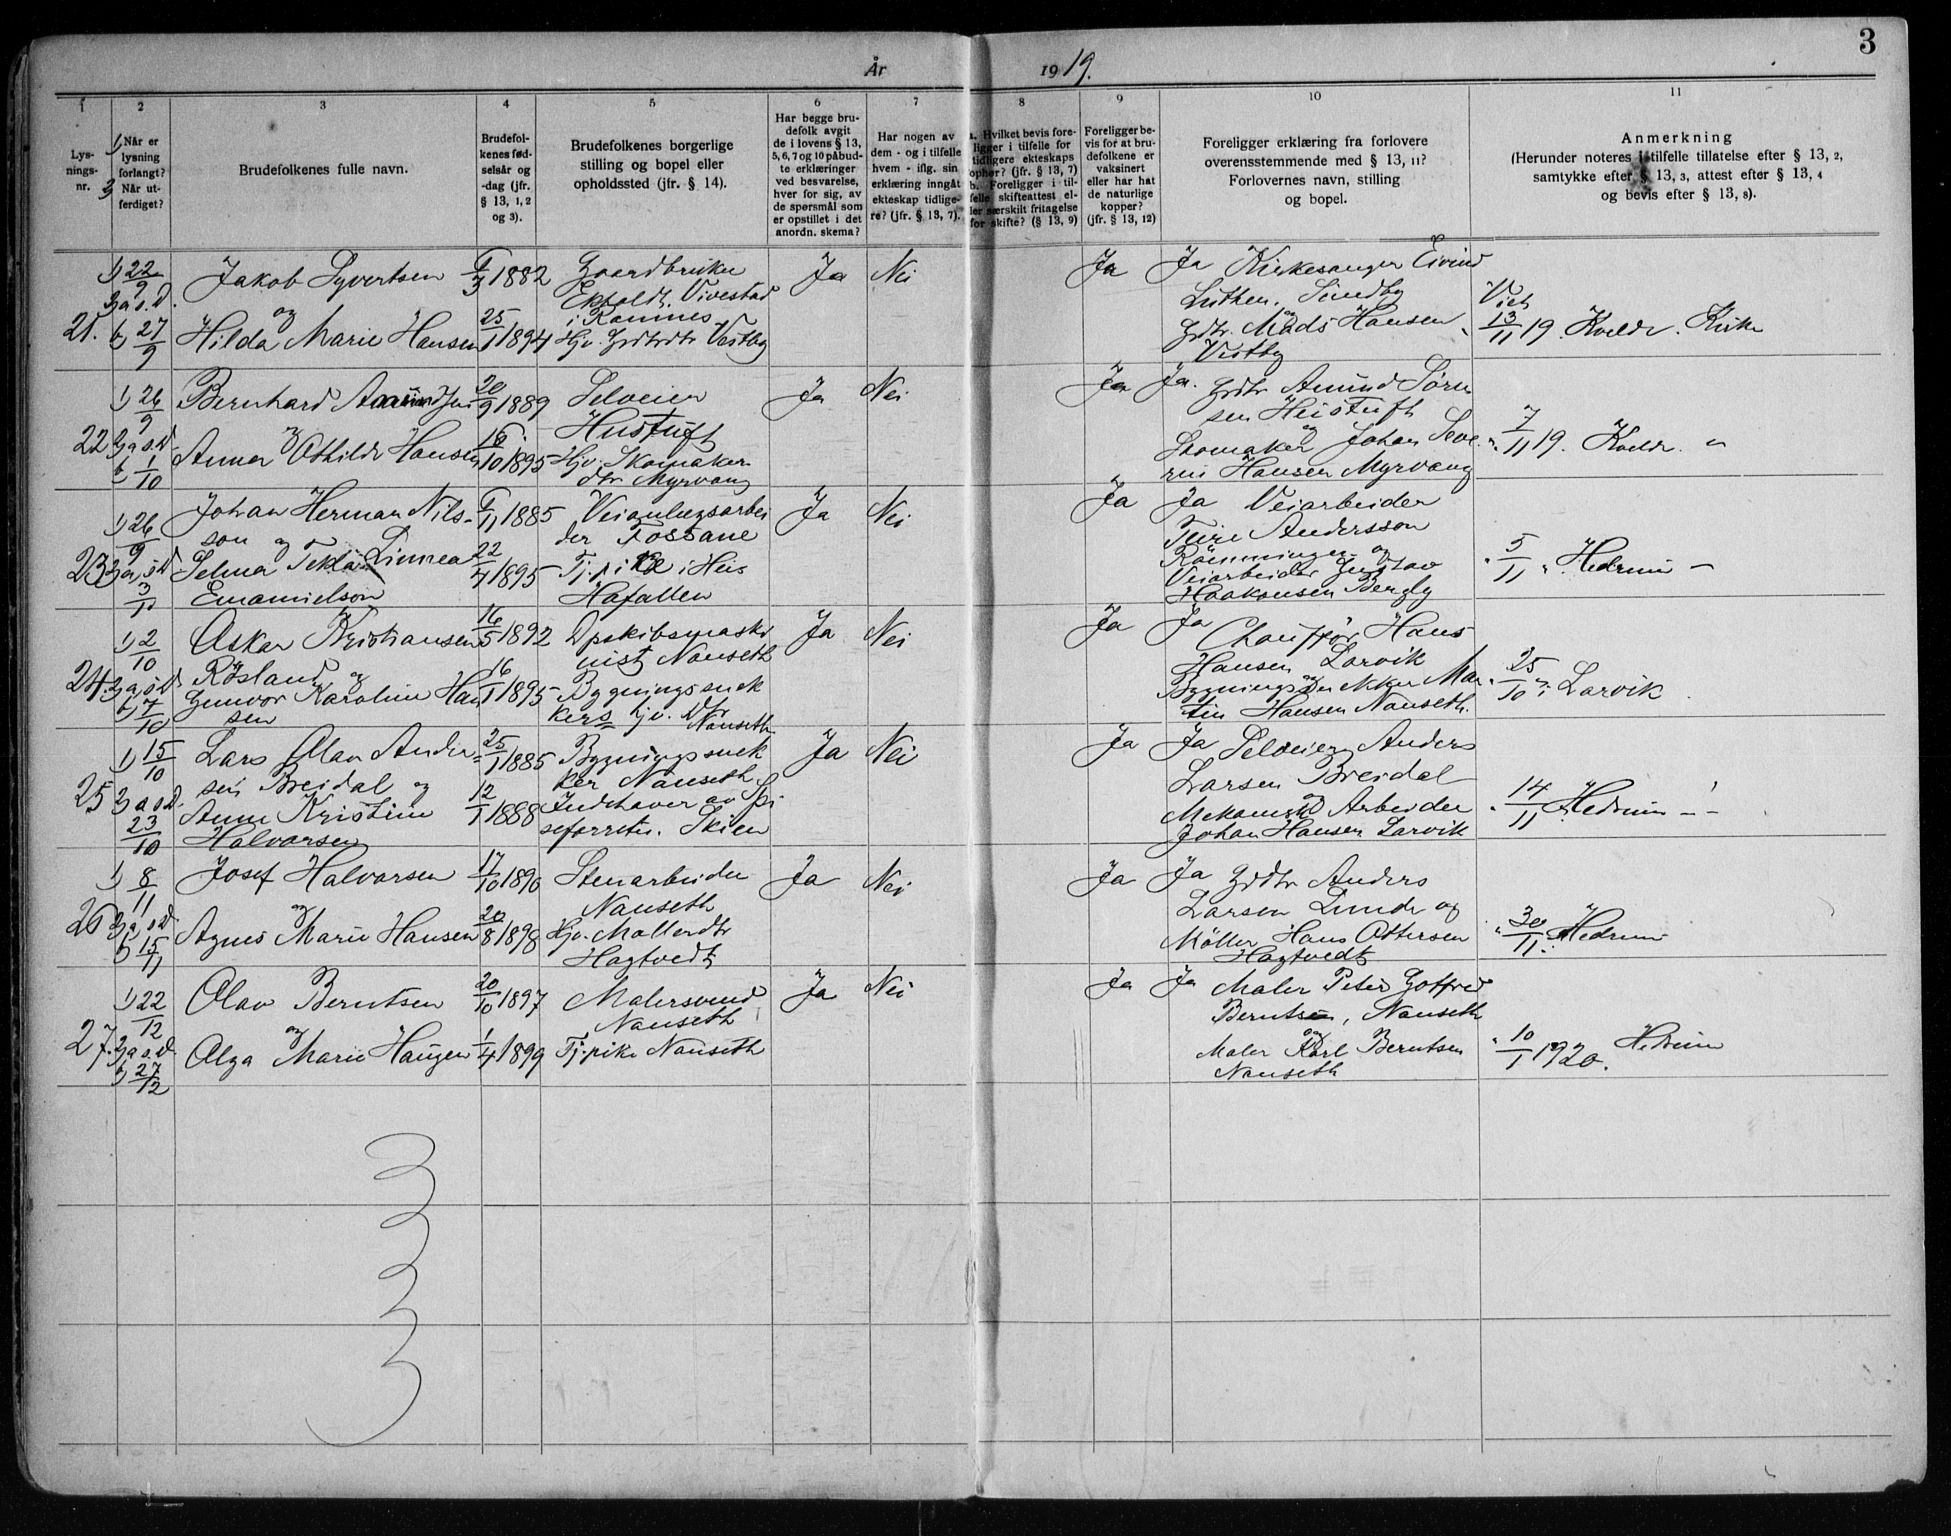 3
År 1919.
1 2 3 4 5 6 7 8 9 10 11
Lys-
nings-
nr.
Når er
lysning
forlangt?
Når ut-
ferdiget?
Brudefolkenes fulle navn.
Brudefol-
kenes fød-
selsår og
-dag (jfr.
§ 13, 1, 2
og 3).
Brudefolkenes borgerlige
stilling og bopel eller
opholdssted (jfr. § 14).
Har begge bru-
defolk avgit
de i lovens § 13,
5, 6, 7 og 10 påbud-
te erklæringer
ved besvarelse,
hver for sig, av
de spørsmål som
er opstillet i det
anordn. skema?
Har nogen av
dem - og i tilfelle
hvem - iflg. sin
erklæring inngåt
ekteskap tidlige-
re? (jfr. § 13, 7).
a. Hvilket bevis fore-
ligger i tilfelle for
tidligere ekteskaps
ophør? (jfr. § 13, 7)
b. Foreligger i til-
felle skifteattest el-
ler særskilt fritagelse
for skifte? (§ 13, 9)
Foreligger be-
vis for at bru-
defolkene er
vaksinert
eller har hat
de naturlige
kopper?
(jfr. § 13, 12)
Foreligger erklæring fra forlovere
overensstemmende med § 13, 11?
Forlovernes navn, stilling
og bopel.
Anmerkning
(Herunder noteres i tilfelle tillatelse efter § 13, 2,
samtykke efter § 13, 3, attest efter § 13, 4
og bevis efter § 13, 8).
21.
1) 22/9
2 a s.d.
b 27/9
Jakob Syvertsen
og
Hilda Marie Hansen
1/3 1882
25/1 1894
Gaardbruker
Ekholdt. Vivestad
i Ramnes
Hjv. Grdbrdtr Vestby
Ja
Nei
Ja
Ja Kirkesanger Eivind
Luthen. Sundby
og
Gdbr. Mads Hansen
Vestby
Viet
13/11 19. Kvelde. Kirke
22
1) 26/9
2 a s.d.
b 1/10
Bernhard Amundsen
og
Anna Othilde Hansen
20/9 1889
16/10 1895
Selveier
Heistuft
Hjv. Skomaker
dtr Myrvang
Ja
Nei
Ja
Ja. Grdbr Amund Søren
sen Heistuft
og
Skomaker Johan Seve
rin Hansen Myrvang
" 7/11 19. Kvelde. "
23
1) 26/9
2 a, s.d.
3/10
Johan Herman Nils-
son og
Selma Tekla Linnea
Emanuelson
6/11 1885
22/4 1895
Veianlægsarbei
der Fossane
Tj.pike i Heis
Hafallen
Ja
Nei
Ja
Ja Veiarbeider
Ture Andersson
Rämmingen og
Veiarbeider Gustav
Haakonsen Bergly
" 5/11 " Hedrum -
24.
1) 2/10
2 a s.d.
b 7/10
Oskar Kristiansen
Røsland og
Gunvor Karoline Han
sen
16/5 1892
16/1 1895
Dpskibsmaski
nist Nanseth
Bygningssnek
kers hjv. Dtr
Nanseth
Ja
Nei
Ja
Ja
Chauffør Hans
Hansen Larvik
og
Bygningssnekker Mar
tin Hansen Nanseth.
" 25/10 " i Larvik
25
1) 15/10
2 a s.d.
23/10
Lars Olav Ander-
sen Breidal og
Anne Kristine
Halvorsen
25/1 1885
12/1 1888
Bygningssnek
ker Nanseth.
Indehaver av Spi
seforretn. Skien
Ja
Nei
Ja
Ja Selveier Anders
Larsen Breidal
og
Mekanisk Arbeider
Johan Hansen Larvik
" 14/11 " Hedrum - " -
26
1) 8/11
2 a, s.d.
b 15/11
Josef Halvorsen
og
Agnes Marie Hansen
17/10 1890
20/8 1898
Stenarbeider
Nanseth
Hjv. Møllerdtr
Hagtvedt
Ja
Nei
Ja
Ja Grdbr Anders
Larsen Lunde og
Møller Hans Ottersen
Hagtvedt
" 30/11 " Hedrum
27.
1) 22/12
2 a s.d.
b 27/12
Olav Berntsen
og
Olga Marie Haugen
20/10 1897
1/4 1899
Malersvend
Nanseth
Tj.pike Nanseth
Ja
Nei
Ja
Ja Maler Peter Gotfred
Berntsen, Nanseth
og
Maler Karl Berntsen
Nanseth
" 10/1 1920. Hedrum